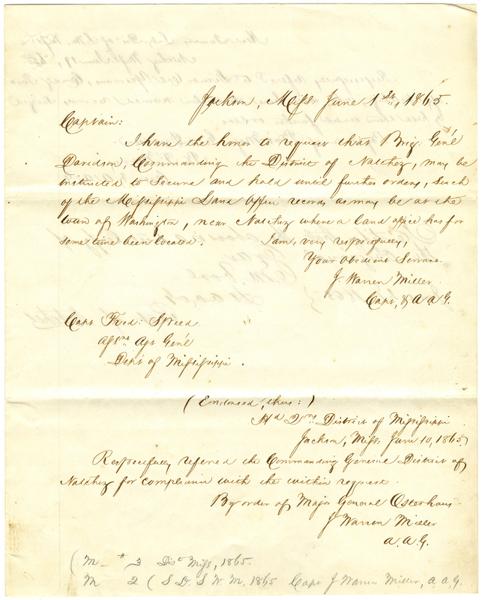 Jackson, Miss. June 1st, 1865.
Captain:
I have the honor to request that Brig. Gen'l
Davidson, Commanding the District of Natchez, may be
instructed to secure and hold until further orders, such
of the Mississippi Land Office records as may be at the
town of Washington, near Natchez where a land office has for
some time been located. I am, very respectfully,
Your obedient Servant
J. Warren Miller
Capt. & A.A.G.
Capt. Fred: Speed
Asst. Adjt Gen'l
Dept of Mississippi
(Endorsed, thus:)
Hd Qrs District of Mississippi
Jackson, Miss June 10, 1865
Respectfully referred the Commanding General District of
Natchez for compliance with the within request.
By order of Major General Osterhaus
J Warren Miller
A.A.G.
Dis. Miss, 1865.
1865 Capt J Warren Miller, a.a.G.